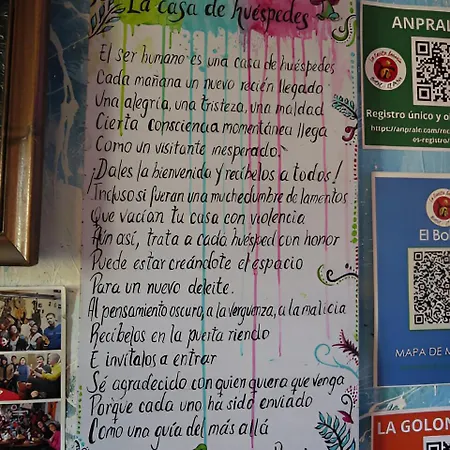 La casa de huéspedes
El ser humano es una casa de huéspedes
Cada mañana un nuevo recién llegado
Una alegría, una tristeza, una maldad
Cierta consciencia momentánea llega
Como un visitante inesperado.
¡Dales la bienvenida y recíbelos a todos!
Incluso si fueran una muchedumbre de lamentos
Que vacían tu casa con violencia
Aún así, trata a cada huésped con honor
Puede estar creándote el espacio
Para un nuevo deleite.
Al pensamiento oscuro, a la vergüenza, a la malicia
Recíbelos en la puerta riendo
E invítalos a entrar
Sé agradecido con quien quiera que venga
Porque cada uno ha sido enviado
Como una guía del más allá
ANPRAL
Registro único y o
https://anpraln.com/rec
es-registro/
El Bol
MAPA DE M
LA GOLON